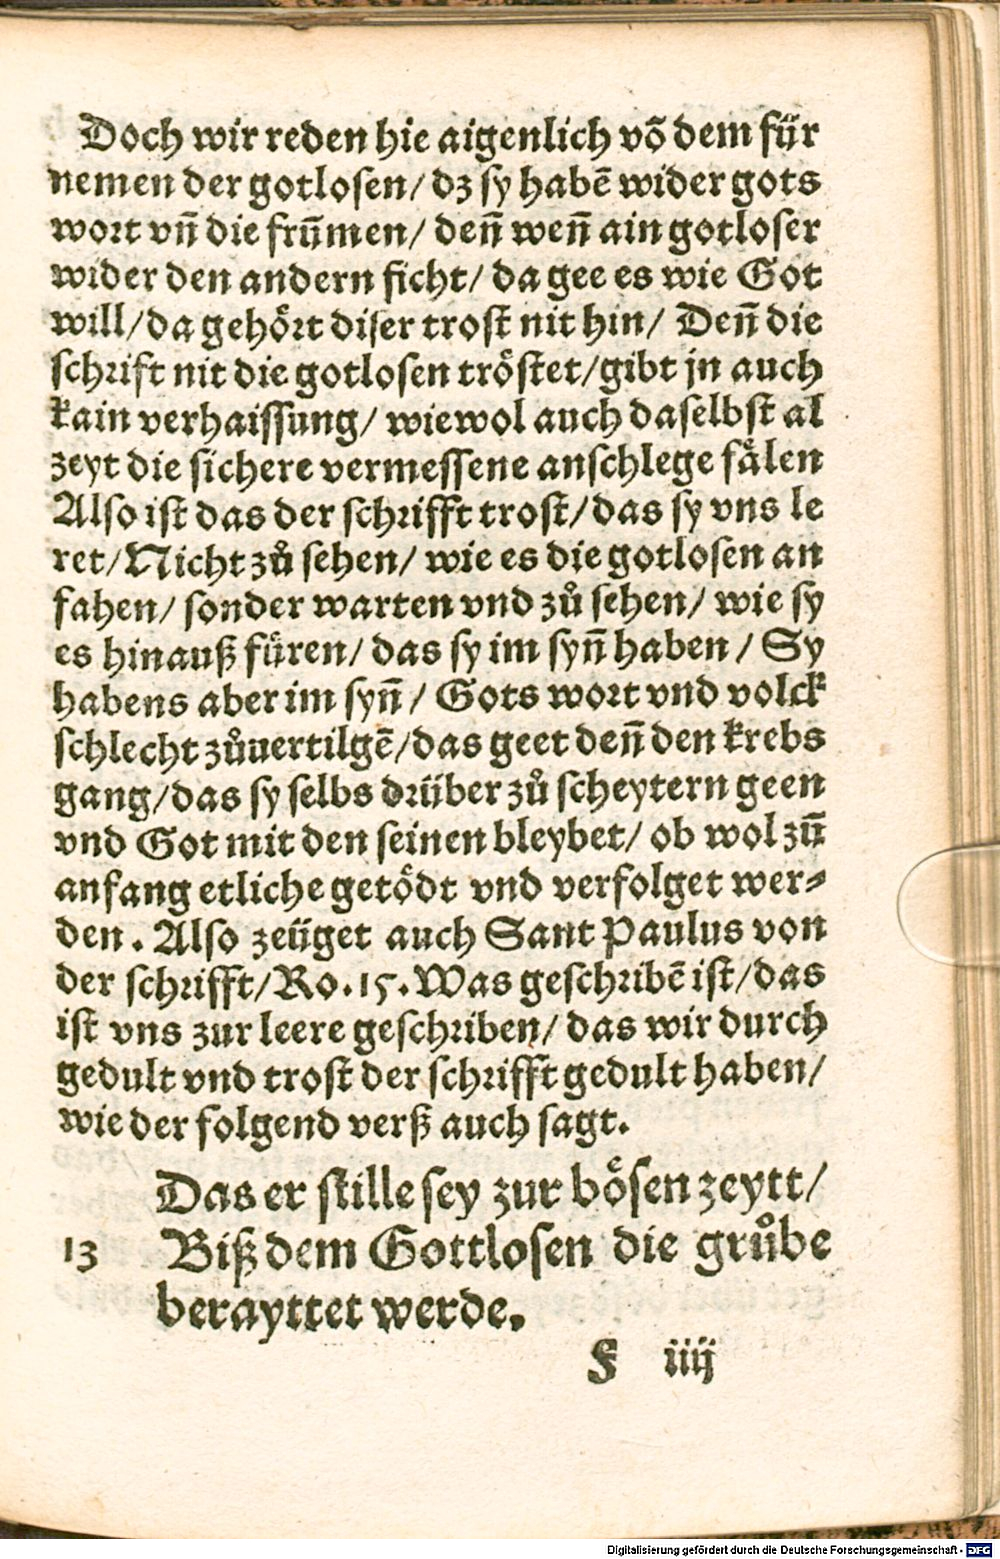 Doch wir reden hie aigenlich võ dem für
nemen der gotlosen/ dz sy habẽ wider gots
wort vñ die frũmen/ deñ weñ ain gotloser
wider den andern ficht/ da gee es wie Got
will/da gehoͤrt diser trost nit hin/ Deñ die
schrift nit die gotlosen troͤstet/gibt jn auch
kain verhaissung/ wiewol auch daselbst al
zeyt die sichere vermessene anschlege faͤlen
Also ist das der schrifft trost/das sy vns le
ret/Nicht zuͦ sehen/ wie es die gotlosen an
fahen/ sonder warten vnd zuͦ sehen/ wie sy
es hinauß fuͤren/ das sy im syñ haben / Sy
habens aber im syñ / Gots wort vnd volck
schlecht zuͦuertilgẽ/das geet deñ den krebs
gang/das sy selbs drüber zuͦ scheytern geen
vnd Got mit den seinen bleybet/ ob wol zũ
anfang etliche getoͤdt vnd verfolget wer⸗
den. Also zeüget auch Sant Paulus von
der schrifft/Ro.15.Was geschribẽ ist/das
ist vns zur leere geschriben/ das wir durch
gedult vnd trost der schrifft gedult haben/
wie der folgend verß auch sagt.
Das er stille sey zur boͤsen zeytt/
13 Biß dem Gottlosen die gruͦbe
berayttet werde.
F iiij
Digitalisierung gefördert durch die Deutsche Forschungsgemeinschaft - DFG